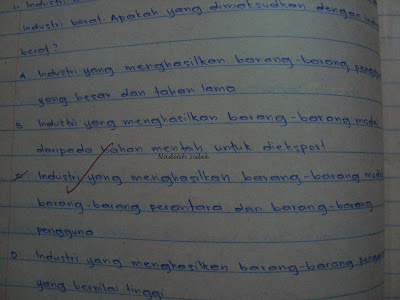 industri berat. Apakah yang dimaksudkan dengan
berat?
A Industri yang menghasilkan barang-barang
yang besar dan tahan lama
B Industri yang menghasilkan barang-barang
daripada bahan mentah untuk dieksport
Nadiah Sidek
Industri yang menghasilkan barang-barang
barang-barang perantara dan barang-barang
pengguna
D Industri yang menghasilkan barang-barang
yang bernilai tinggi